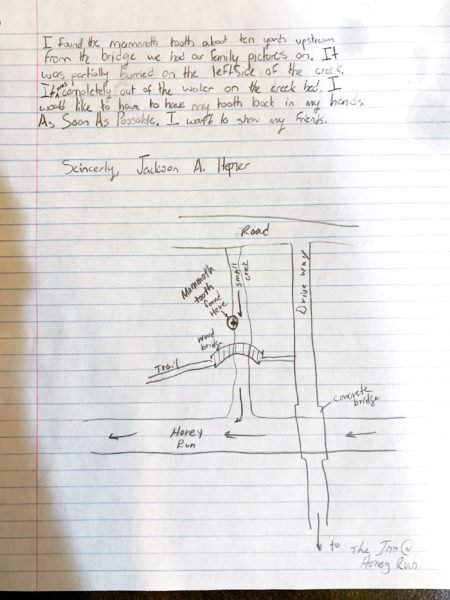 I found the mammoth tooth about ten yards upstream
from the bridge we had our family pictures on. It
was partially burried on the left side of the creek.
It was completely out of the water on the creek bed. I
would like to have to have my tooth back in my hands
As Soon As Possable. I want to show my friends.
Scincerly, Jackson A. Hepner
Road
small
creek
Drive way
Mammoth
tooth
found
Here
wood
bridge
Trail
concrete
bridge
Honey
Run
to The Inn @
Honey Run